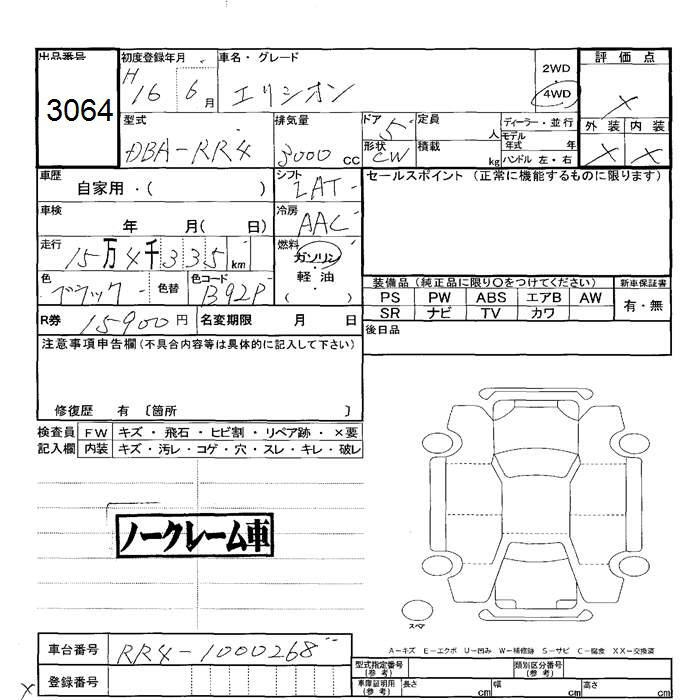 出品番号 初度登録年月 車名・グレード 2WD 評価点
3064 H 16 6月 エリシオン 4WD ×
型式 排気量 ドア 5 定員 人 ディーラー・並行 外装 内装
DBA-RR4 3000 cc 形状 CW 積載 kg モデル年式 年 × ×
ハンドル 左・右
車歴 自家用・( ) シフト LAT セールスポイント (正常に機能するものに限ります)
車検 年 月( 日) 冷房 AAC
走行 15万4千335km 燃料 ガソリン
軽・油
( )
色 ブラック 色替 色コード B92P 装備品 (純正品に限り〇をつけてください) 新車保証書
PS PW ABS エアB AW 有・無
SR ナビ TV カワ
R券 15900円 名変期限 月 日 後日品
注意事項申告欄(不具合内容等は具体的に記入して下さい)
修復歴 有 〔箇所 〕
検査員 FW キズ・飛石・ヒビ割・リペア跡・×要
記入欄 内装 キズ・汚レ・コゲ・穴・スレ・キレ・破レ
ノークレーム車
スペア
A-キズ E-エクボ U-凹み W-補修跡 S-サビ C-腐食 XX-交換済
車台番号 RR4-1000268 型式指定番号(参考) 類別区分番号(参考)
登録番号 車庫証明用(参考) 長さ cm 幅 cm 高さ cm
×